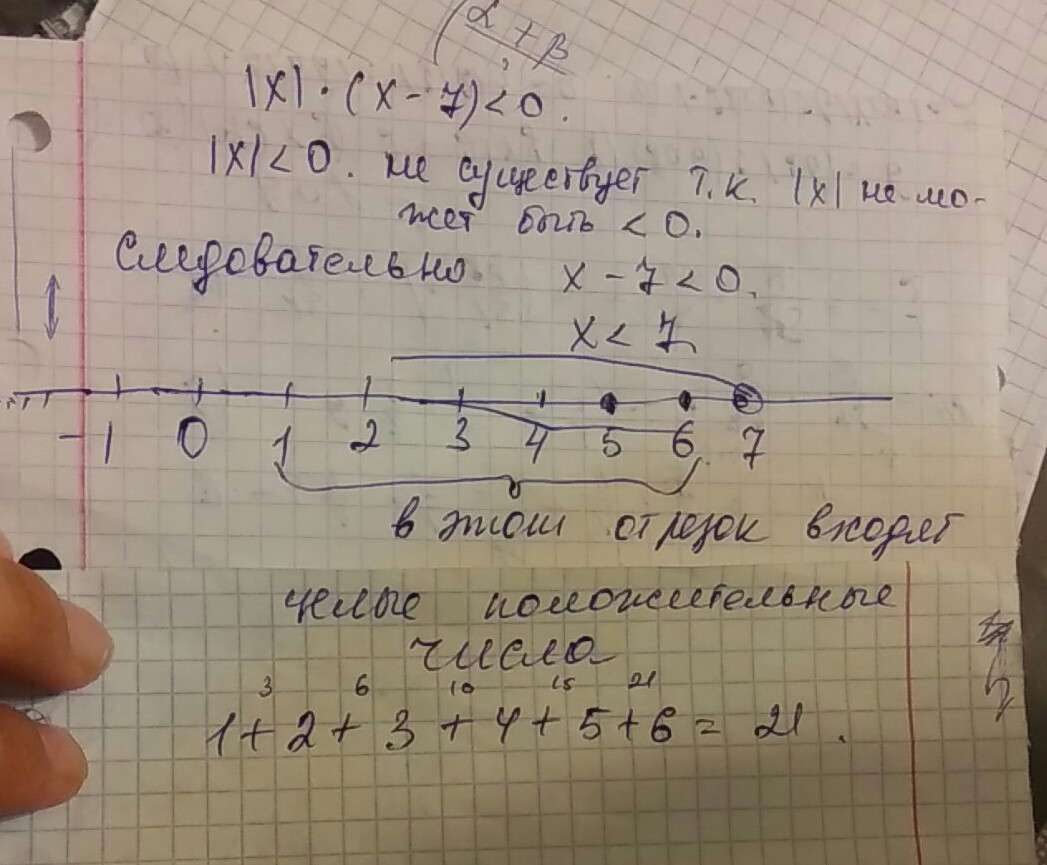 α + β
|x| · (x - 7) < 0.
|x| < 0. не существует т.к. |x| не мо-
жет быть < 0.
Следовательно x - 7 < 0.
x < 7
-1 0 1 2 3 4 5 6 7
в этот отрезок входят
целые положительные
числа
3 6 10 15 21
1 + 2 + 3 + 4 + 5 + 6 = 21.